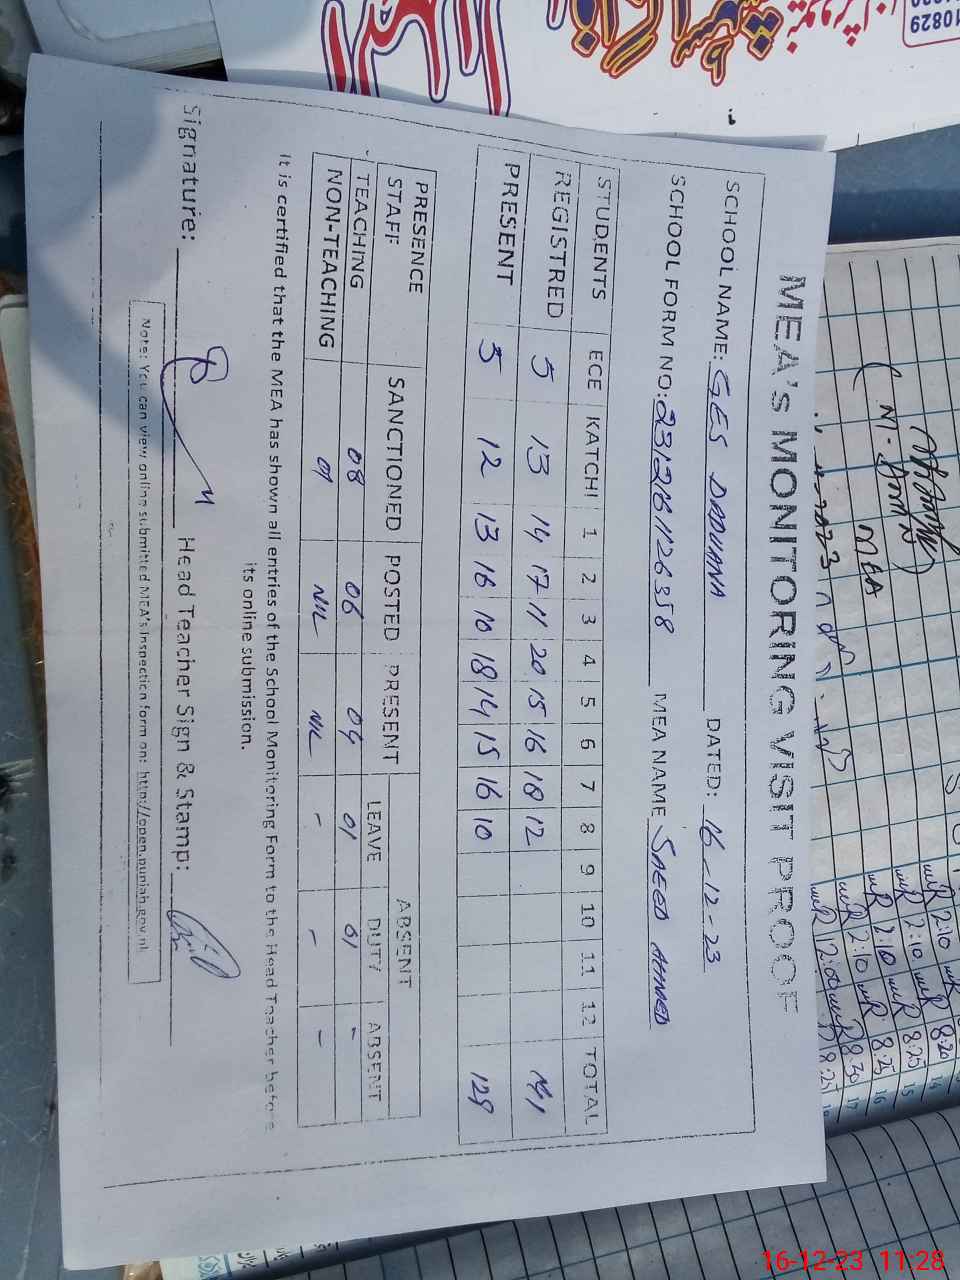 MEA's MONITORING VISIT PROOF
SCHOOL NAME: GES DADUANA DATED: 16-12-23
SCHOOL FORM NO: 2312B1126358 MEA NAME SAEED AHMED
STUDENTS ECE KATCHI 1 2 3 4 5 6 7 8 9 10 11 12 TOTAL
REGISTRED 5 13 14 17 11 20 15 16 18 12 141
PRESENT 5 12 13 16 10 18 14 15 16 10 129
PRESENCE STAFF SANCTIONED POSTED PRESENT ABSENT
LEAVE DUTY ABSENT
TEACHING 08 06 04 01 01 -
NON-TEACHING 01 NIL NIL - - -
It is certified that the MEA has shown all entries of the School Monitoring Form to the Head Teacher before
its online submission.
Signature: Head Teacher Sign & Stamp:
Note: You can view online submitted MEA's Inspection form on: http://open.punjab.gov.pk
10829
MEA
2:10 8:20
2:10 8:25
2:10 8:25
2:10 8:30
12:00 8:25
14
15
16
17
16-12-23 11:28